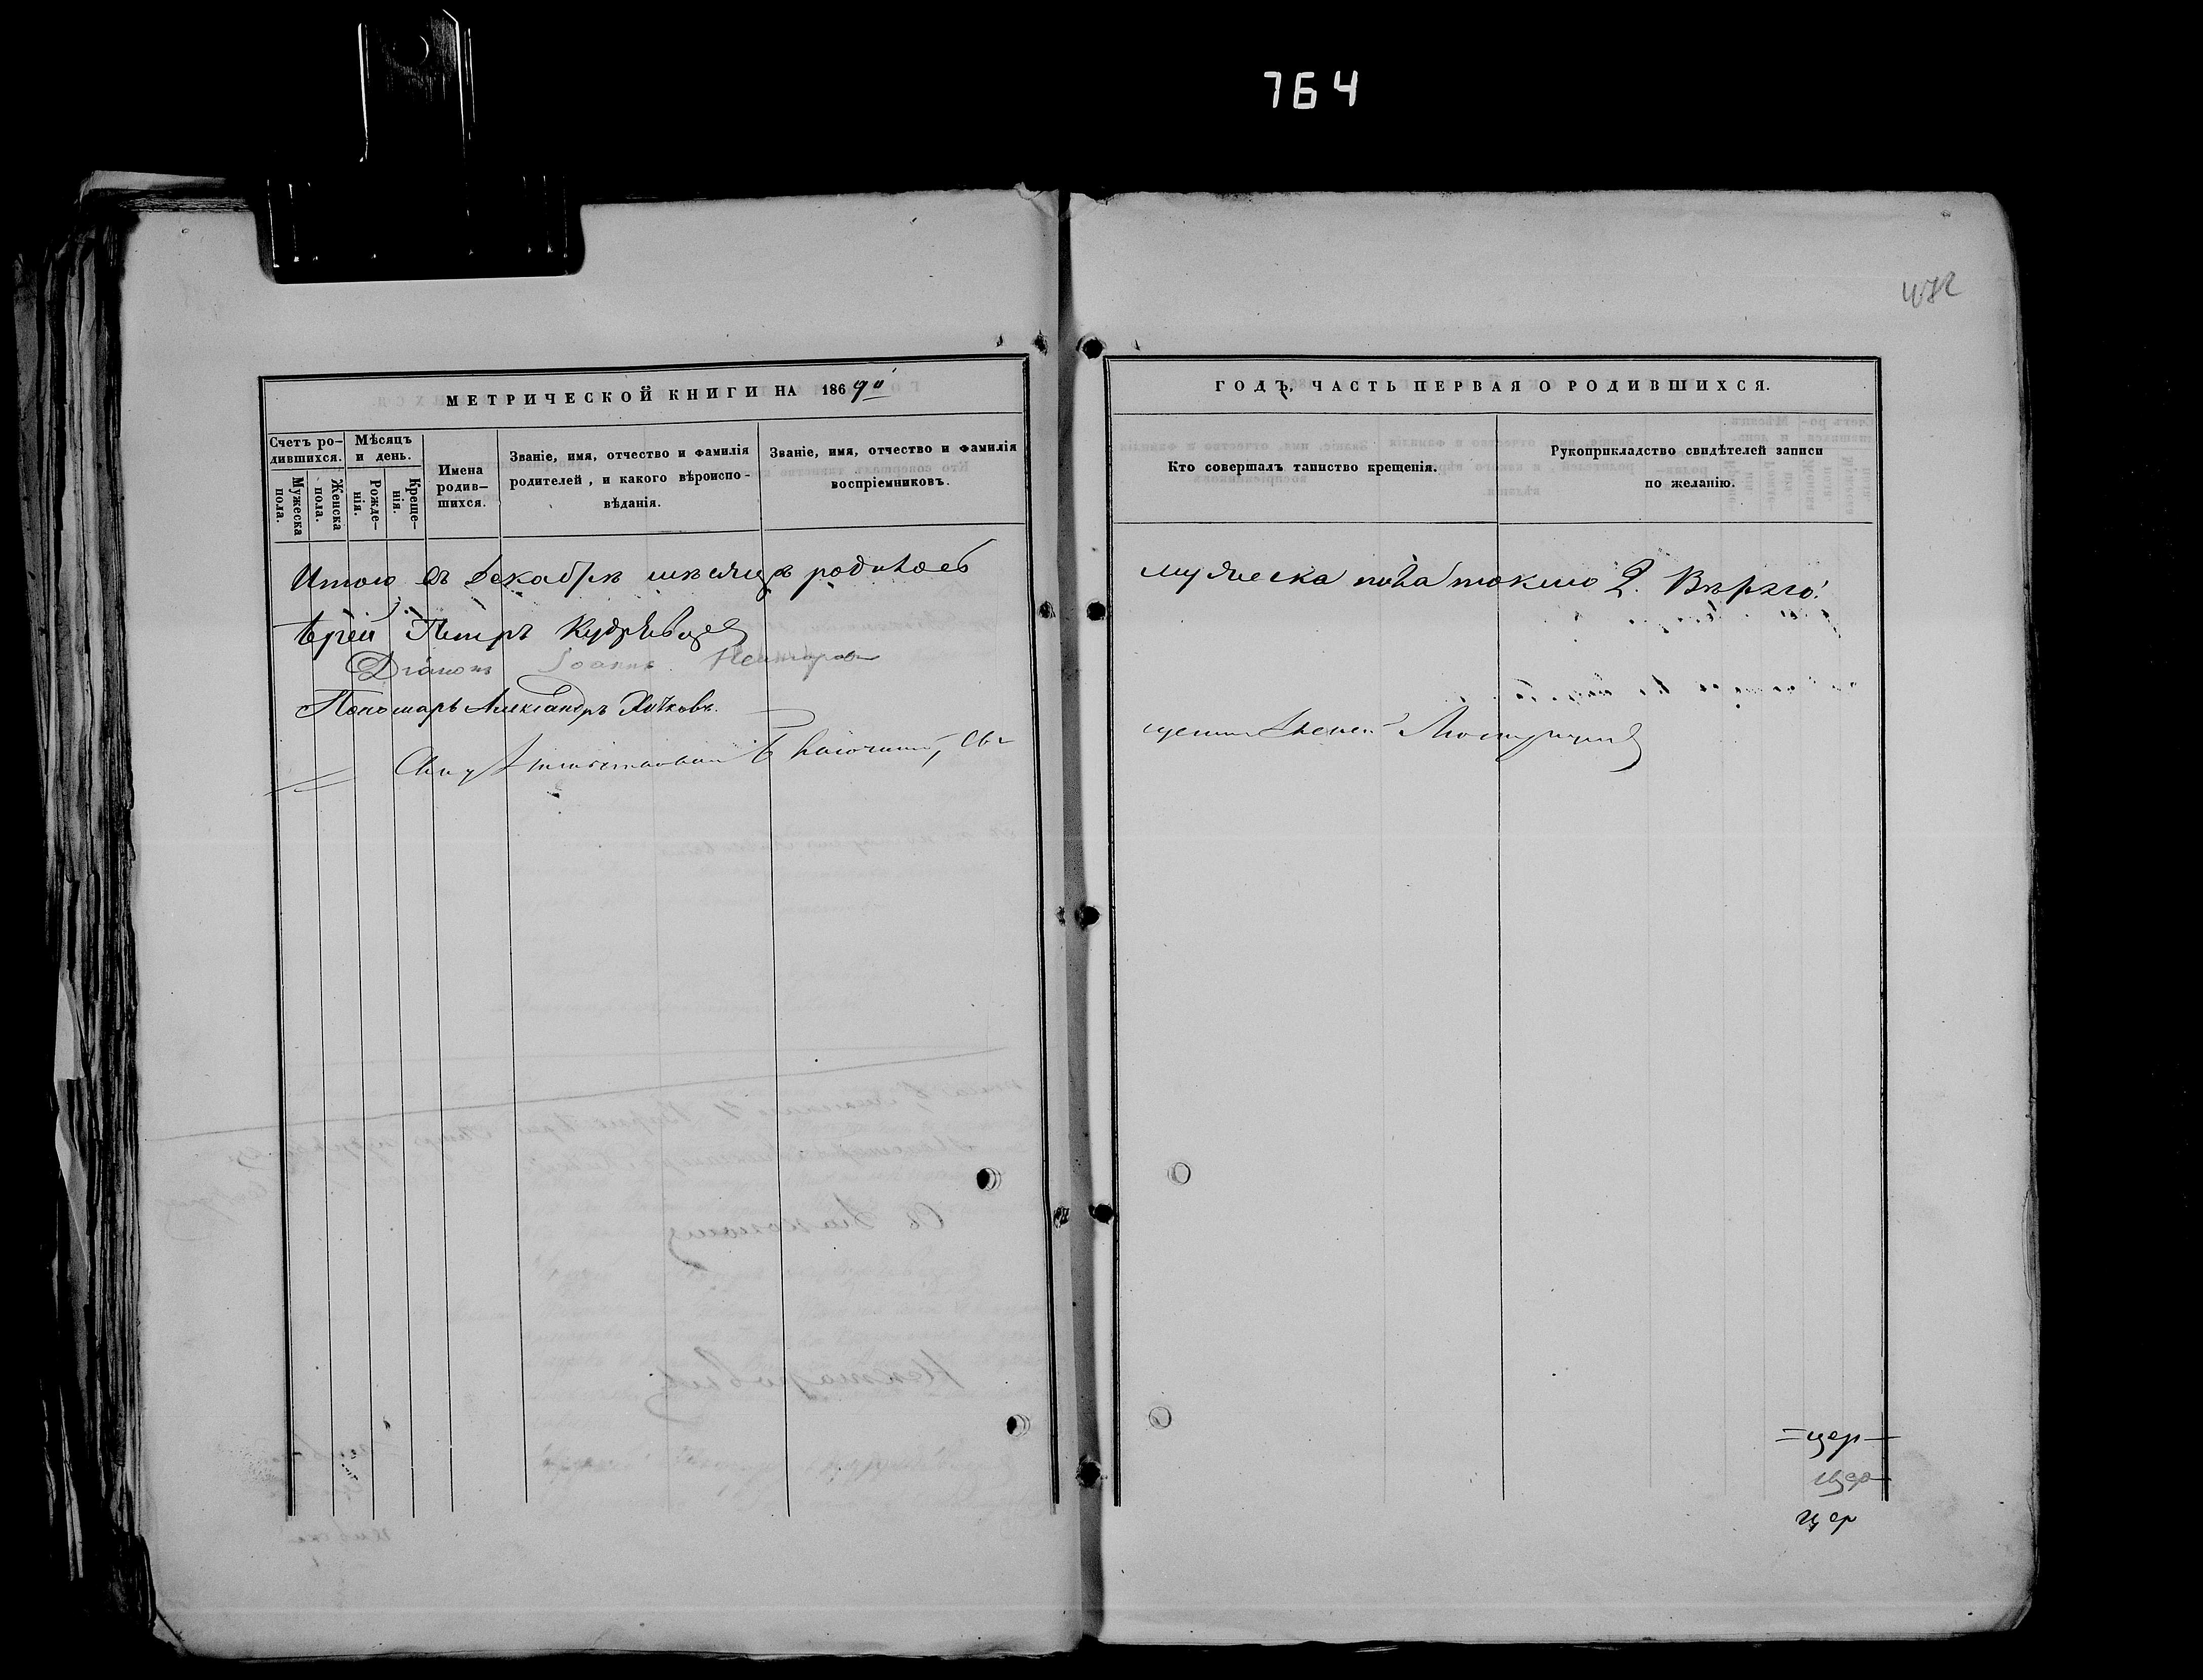 764
472
МЕТРИЧЕСКОЙ КНИГИ НА 1869й
ГОДЪ, ЧАСТЬ ПЕРВАЯ О РОДИВШИХСЯ.
Счетъ ро-
дившихся.
Мужеска
пола.
Женска
пола.
Мѣсяцъ
и день.
Рожде-
нія.
Креще-
нія.
Имена
родив-
шихся.
Званіе, имя, отчество и фамилія
родителей, и какого вѣроиспо-
вѣданія.
Званіе, имя, отчество и фамилія
воспріемниковъ.
Кто совершалъ таинство крещенія.
Рукоприкладство свидѣтелей записи
по желанію.
Итого въ Декабрѣ мѣсяцѣ родилось
мужеска пола токмо 2. Вѣрно:
Іерей Петръ Кудрявцев
Діаконъ Іоаннъ Нектаров
Пономарь Александръ
цер
цер
цер